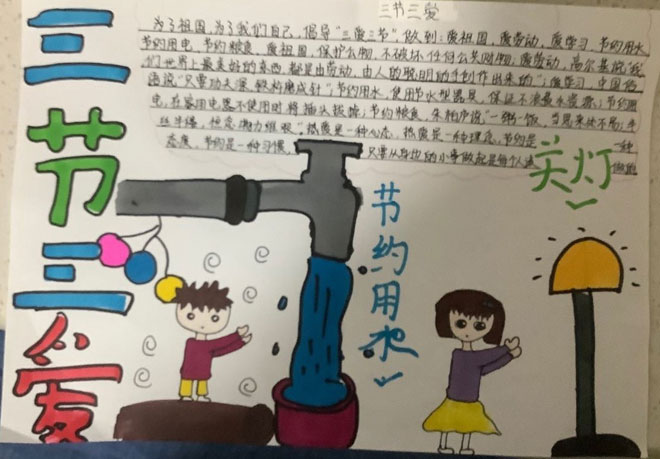 三节三爱
为了祖国,为了我们自己,倡导"三爱三节",做到:爱祖国,爱劳动,爱学习,节约用水
节约用电,节约粮食,爱祖国,保护公物,不破坏任何公共财物,爱劳动,高尔基说"我
们世界上最美好的东西,都是由劳动,由人的聪明的手创作出来的";爱学习,中国俗
语说"只要功夫深,铁杵磨成针";节约用水,使用节水型器具,保证不浪费水资源;节约用
电,在家用电器不使用时将插头拔掉;节约粮食,朱柏庐说"一粥一饭,当思来处不易;半
丝半缕,恒念物力维艰"。热爱是一种心态,热爱是一种理念,节约是一种
态度,节约是一种习惯,只要从身边的小事做起是每个人
三节三爱
节约用水
关灯